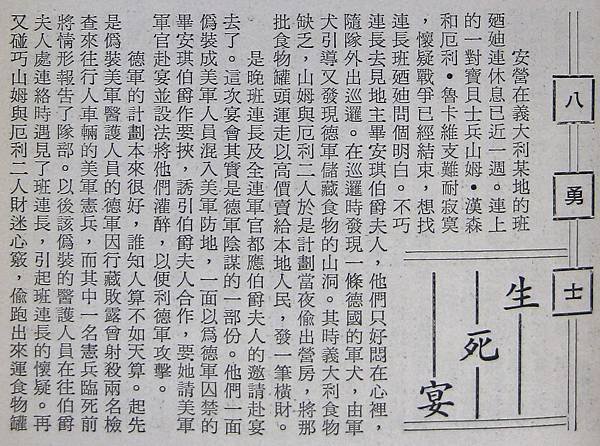 八勇士
生死宴
安營在義大利某地的班
廼廸連休息已近一週。連上
的一對寶貝士兵山姆•漢森
和厄利•魯卡維支難耐寂寞
，懷疑戰爭已經結束，想找
連長班廼廸問個明白。不巧
連長去見地主畢安琪伯爵夫人，他們只好悶在心裡，
隨隊外出巡邏。在巡邏時發現一條德國的軍犬，由軍
犬引導又發現德軍儲藏食物的山洞。其時義大利食物
缺乏，山姆與厄利二人於是計劃當夜偷出營房，將那
批食物罐頭運走以高價賣給本地人民，發一筆橫財。
是晚班連長及全連軍官都應伯爵夫人的邀請赴宴
去了。這次宴會其實是德軍陰謀的一部份。他們一面
僞裝成美軍人員混入美軍防地，一面以爲德軍囚禁的
畢安琪伯爵作要挾，誘引伯爵夫人合作，要她請美軍
軍官赴宴並設法將他們灌醉，以便利德軍攻擊。
德軍的計劃本來很好，誰知人算不如天算。起先
是僞裝美軍醫護人員的德軍因行藏敗露曾射殺兩名檢
查來往行人車輛的美軍憲兵，而其中一名憲兵臨死前
將情形報告了隊部。以後該僞裝的醫護人員在往伯爵
夫人處連絡時遇見了班連長，引起班連長的懷疑。再
又碰巧山姆與厄利二人財迷心竅，偷跑出來運食物罐